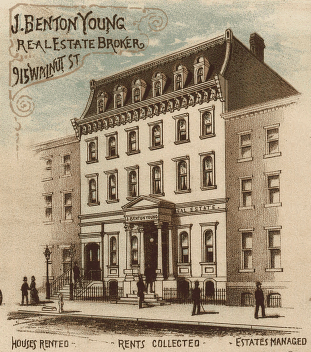 J. BENTON YOUNG
REAL ESTATE BROKER
915 WALNUT ST
REAL ESTATE.
J. BENTON YOUNG
HOUSES RENTED - - RENTS COLLECTED - - ESTATES MANAGED